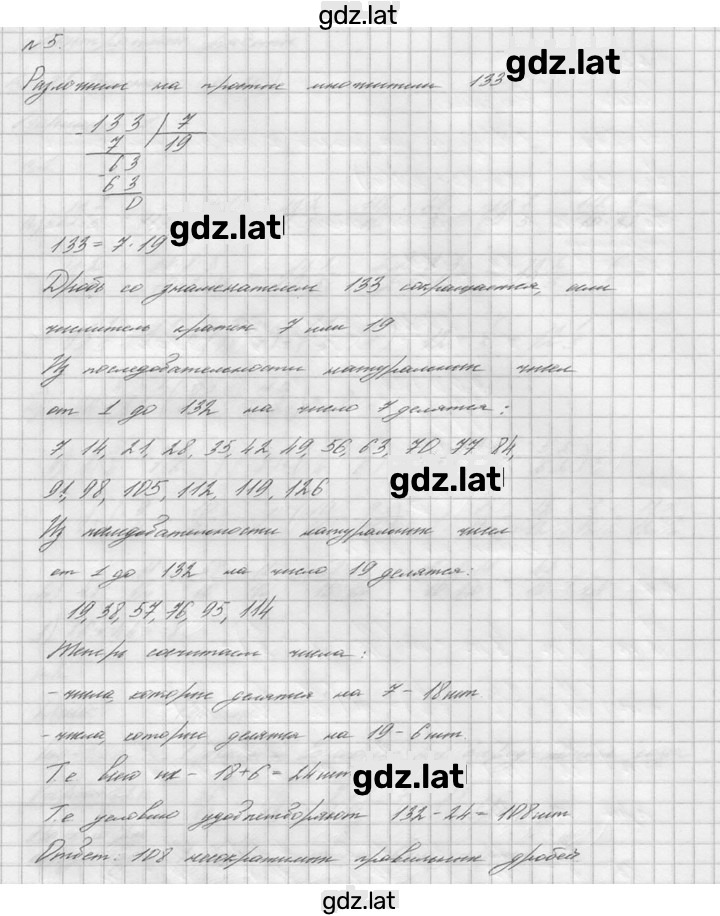 gdz.lat
№ 5.
Разложим на простые множители 133 gdz.lat
- 133 | 7
7 19
- 63
63
0
gdz.lat
133 = 7 · 19
Дробь со знаменателем 133 сокращается, если
числитель кратен 7 или 19
Из последовательности натуральных чисел
от 1 до 132 на число 7 делятся:
7, 14, 21, 28, 35, 42, 49, 56, 63, 70, 77 84,
91, 98, 105, 112, 119, 126 gdz.lat
Из последовательности натуральных чисел
от 1 до 132 на число 19 делятся:
19, 38, 57, 76, 95, 114
Теперь сосчитаем числа:
- числа, которые делятся на 7 - 18 шт.
- числа, которые делятся на 19 - 6 шт.
Т.е всего их - 18 + 6 = 24 шт gdz.lat
Т.е условию удовлетворяют 132 - 24 = 108 шт
Ответ: 108 несократимых правильных дробей
gdz.lat